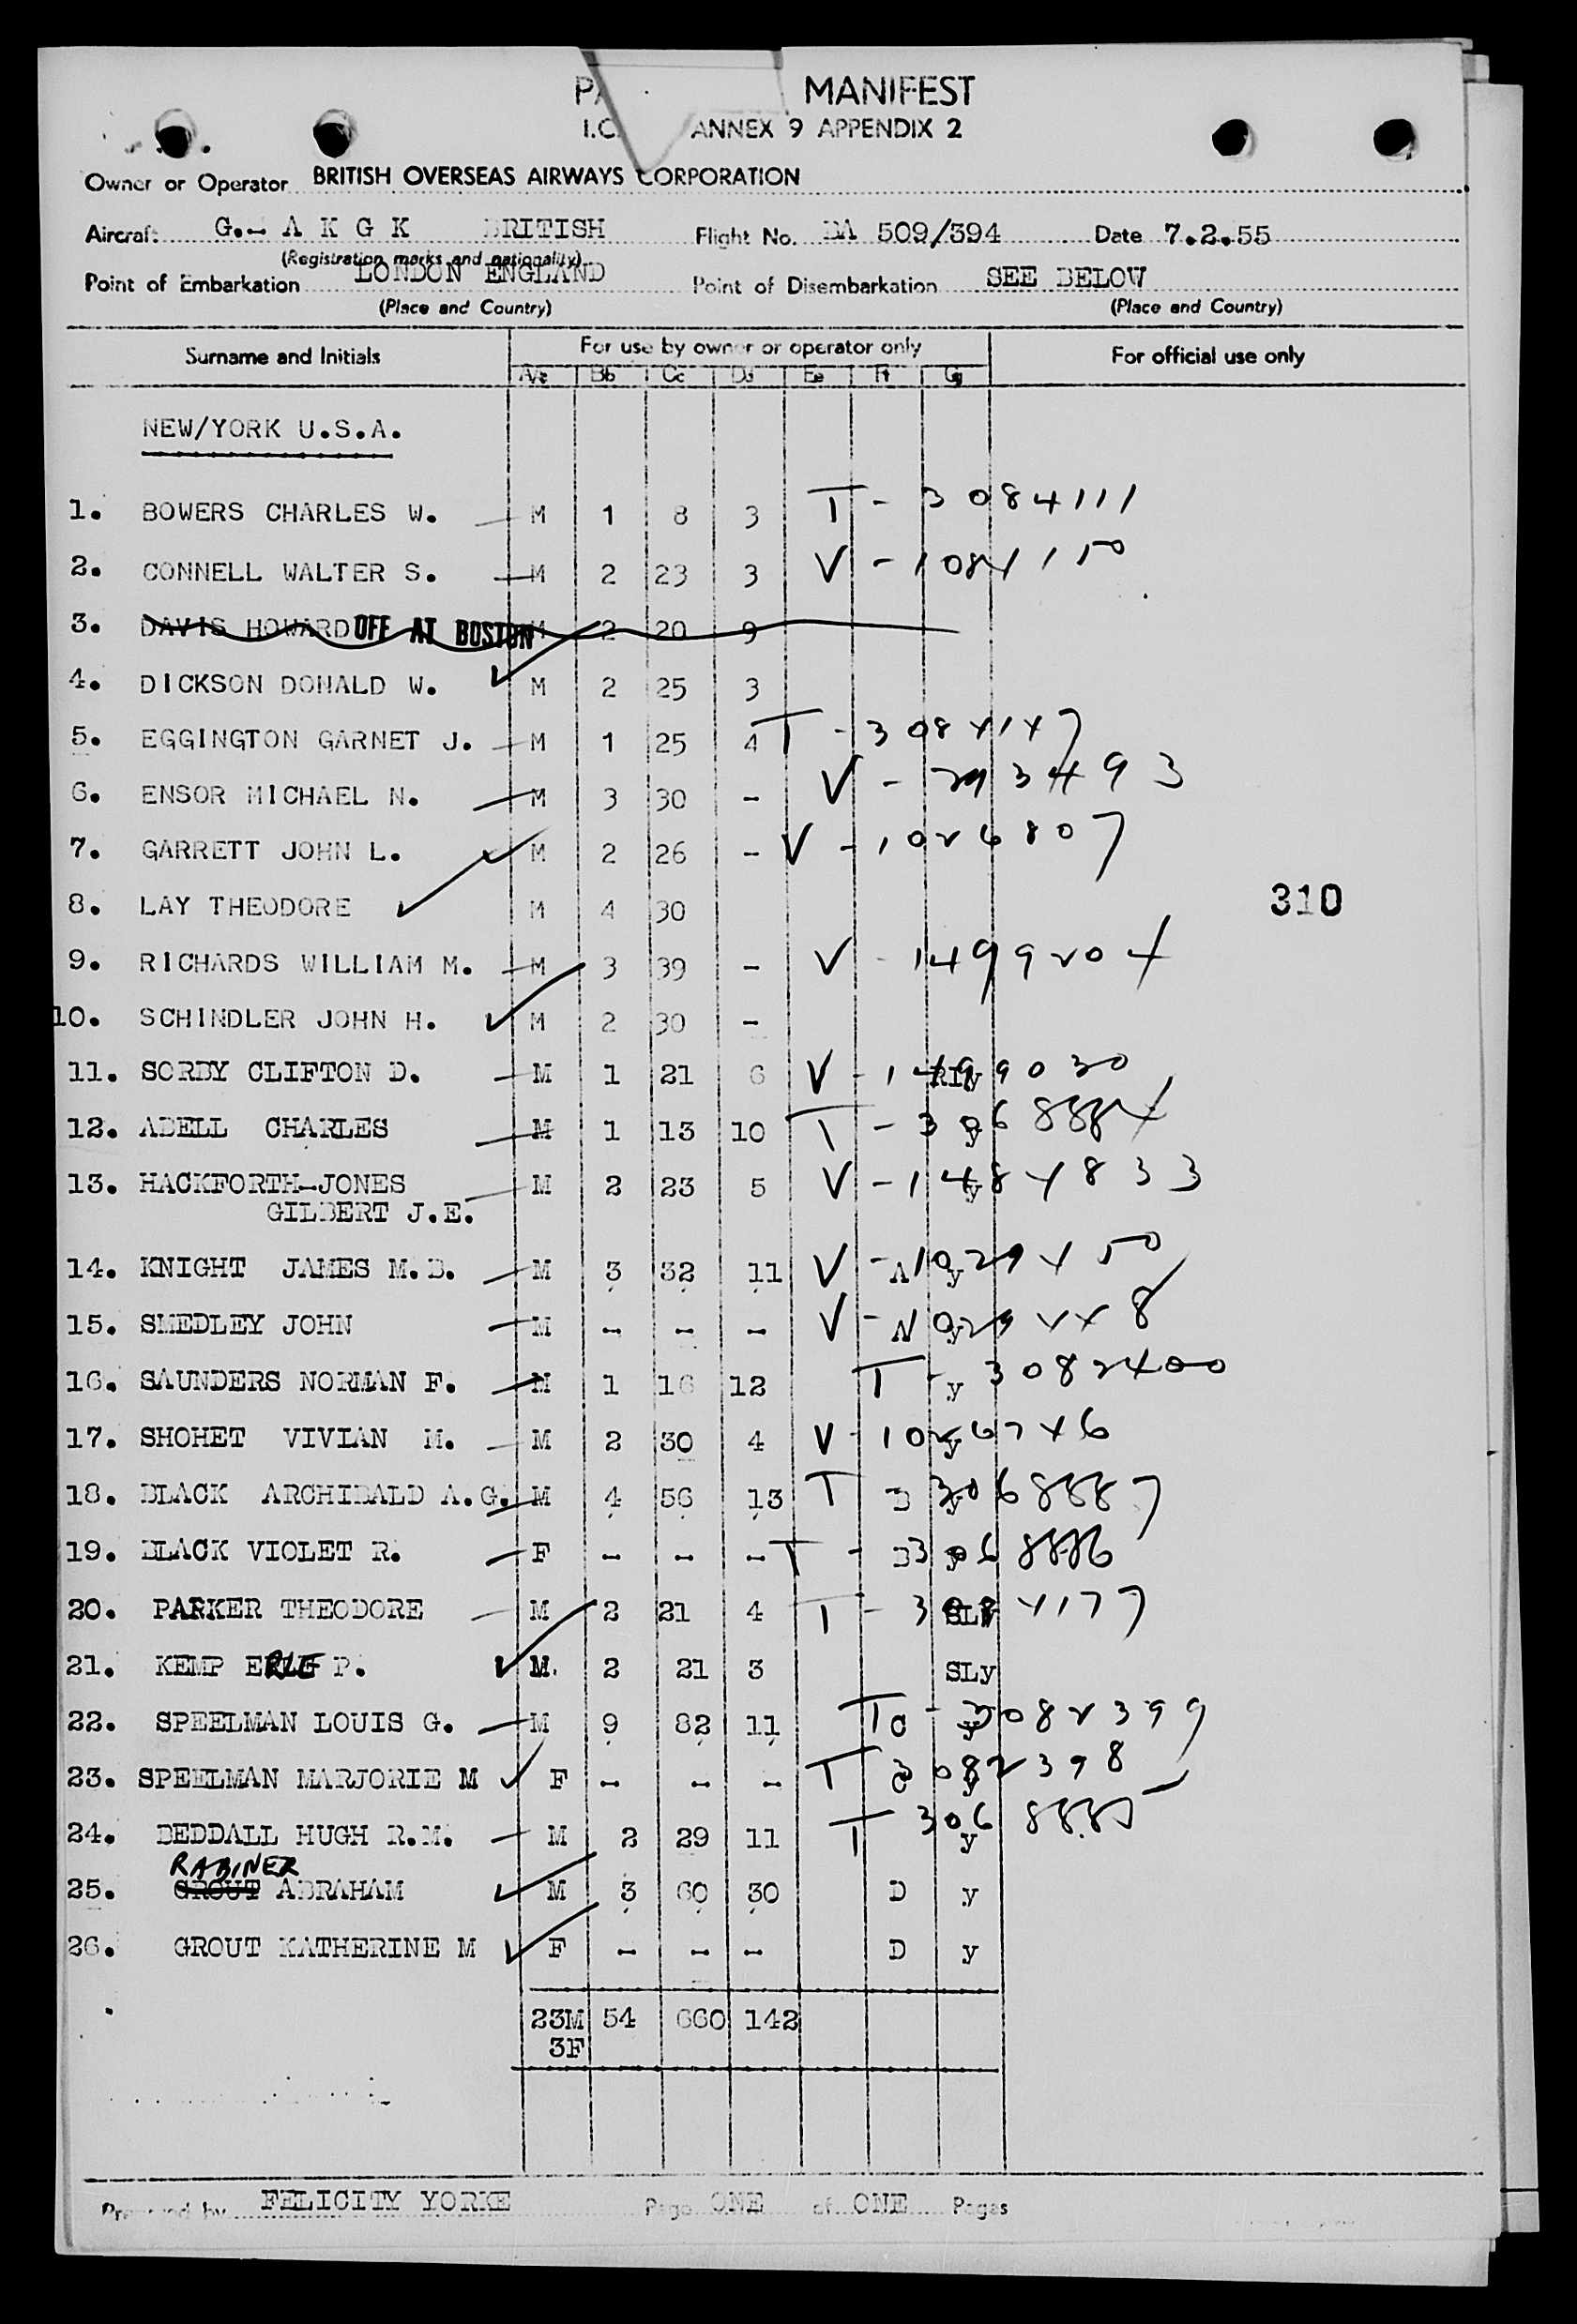 PA MANIFEST
I.C. ANNEX 9 APPENDIX 2
Owner or Operator BRITISH OVERSEAS AIRWAYS CORPORATION
Aircraft G.- A K G K BRITISH Flight No. BA 509/394 Date 7.2.55
(Registration marks and nationality)
Point of Embarkation LONDON ENGLAND Point of Disembarkation SEE BELOW
(Place and Country) (Place and Country)
Surname and Initials For use by owner or operator only For official use only
Aa Bb Cc Dd Ee Ff Gg
NEW/YORK U.S.A.
1. BOWERS CHARLES W. M 1 8 3 T - 3084111
2. CONNELL WALTER S. M 2 23 3 V - 1084150
3. DAVIS HOWARD OFF AT BOSTON M 2 20 9
4. DICKSON DONALD W. M 2 25 3
5. EGGINGTON GARNET J. M 1 25 4 T - 3084147
6. ENSOR MICHAEL N. M 3 30 - V - 293493
7. GARRETT JOHN L. M 2 26 - V - 1026807
8. LAY THEODORE M 4 30
310
9. RICHARDS WILLIAM M. M 3 39 - V - 1499204
10. SCHINDLER JOHN H. M 2 30 -
11. SORBY CLIFTON D. M 1 21 6 V - 1499030 RLy
12. ADELL CHARLES M 1 13 10 T - 3068884 y
13. HACKFORTH-JONES M 2 23 5 V - 1484833 y
GILBERT J.E.
14. KNIGHT JAMES M.B. M 3 32 11 V - 1029450 A y
15. SMEDLEY JOHN M - - - V - 1029448 A y
16. SAUNDERS NORMAN F. M 1 16 12 T - y 3082400
17. SHOHET VIVIAN M. M 2 30 4 V - 1026746 y
18. BLACK ARCHIBALD A.G. M 4 56 13 T B y 3068887
19. BLACK VIOLET R. F - - - T - B y 3068886
20. PARKER THEODORE M 2 21 4 T - 3084177 SLy
21. KEMP ERLE P. M. 2 21 3 SLy
22. SPEELMAN LOUIS G. M 9 82 11 T C - y 3082399
23. SPEELMAN MARJORIE M F - - - T C y 3082398
24. BEDDALL HUGH R.M. M 2 29 11 T 3068885 y
RABINER
25. GROUT ABRAHAM M 3 60 30 D y
26. GROUT KATHERINE M F - - - D y
23M 54 660 142
3F
Prepared by FELICITY YORKE Page ONE of ONE Pages